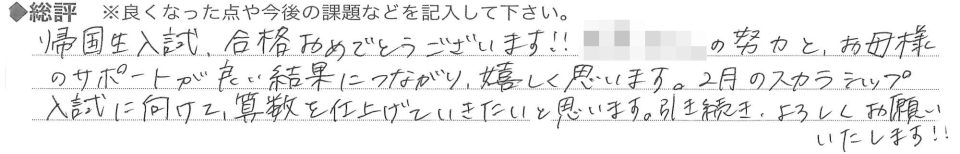 ◆総評 ※良くなった点や今後の課題などを記入して下さい。
帰国生入試、合格おめでとうございます!! の努力と、お母様
のサポートが良い結果につながり、嬉しく思います。2月のスカラシップ
入試に向けて、算数を仕上げていきたいと思います。引き続き、よろしくお願い
いたします!!